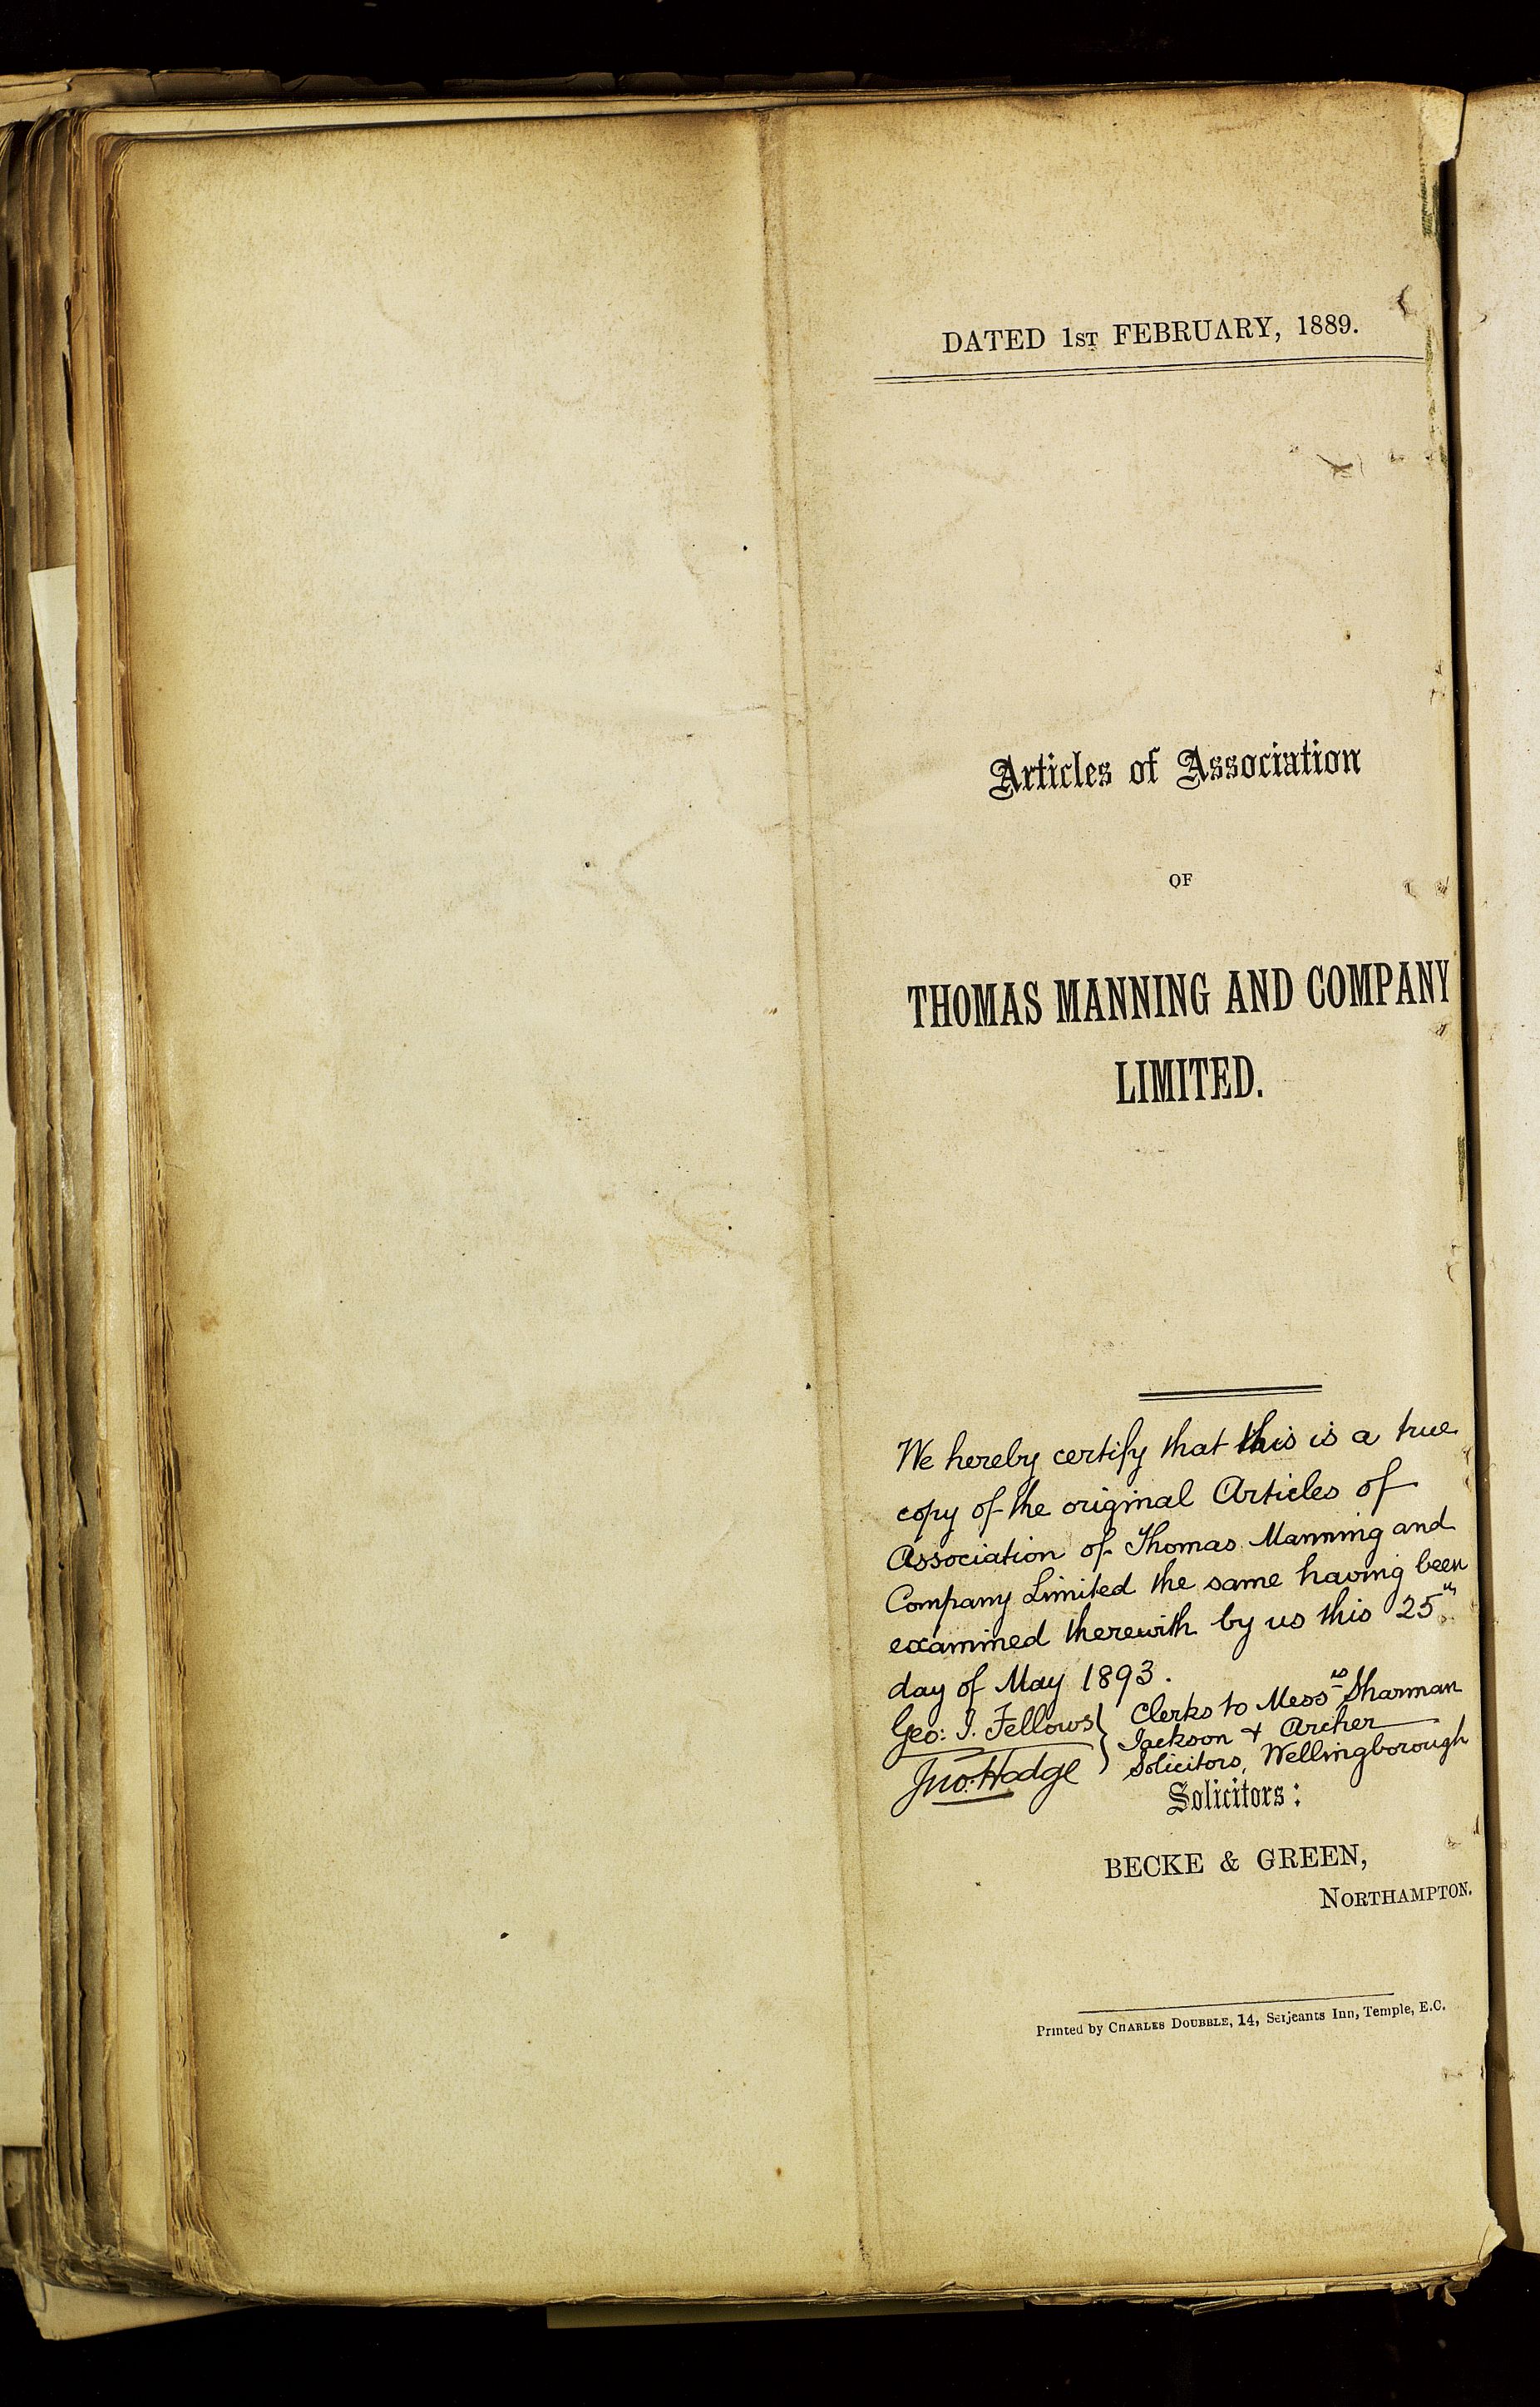 DATED 1ST FEBRUARY, 1889.
Articles of Association
OF
THOMAS MANNING AND COMPANY
LIMITED.
We hereby certify that this is a true
copy of the original Articles of
Association of Thomas Manning and
Company Limited the same having been
examined therewith by us this 25th
day of May 1893.
Geo: J. Fellows } Clerks to Messrs Sharman
Jackson & Archer
Jno. Hodge Solicitors, Wellingborough
Solicitors:
BECKE & GREEN,
NORTHAMPTON.
Printed by CHARLES DOUBBLE, 14, Serjeants Inn, Temple, E.C.